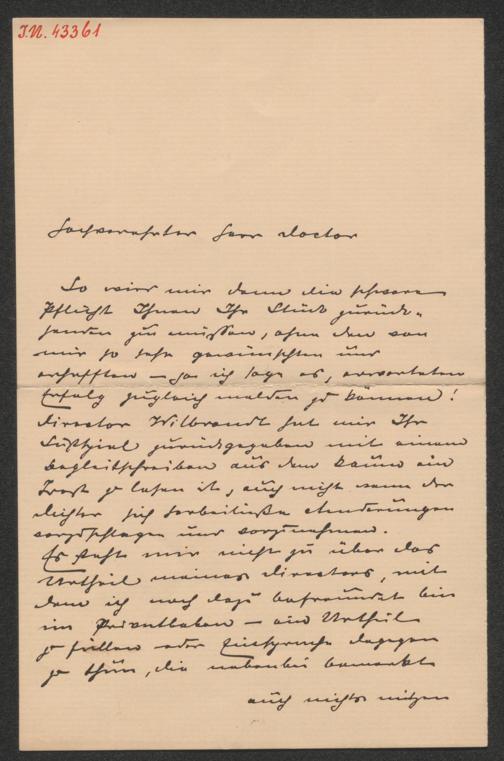 I.N. 43361
Hochverehrter Herr Doctor
So wird mir denn die schwere
Pflicht Ihnen Ihr Stück zurück-
senden zu müssen, ohne den von
mir so sehr gewünschten und
erhofften – ja ich sage es, erwarteten
Erfolg zugleich melden zu können!
Director Wilbrandt hat mir Ihr
Lustspiel zurückgegeben mit einem
Begleitschreiben aus dem kaum ein
Trost zu lesen ist, auch nicht wenn der
Dichter sich herbeiließe Änderungen
vorzuschlagen und vorzunehmen.
Es steht mir nicht zu über das
Urtheil meines Directors, mit
dem ich noch dazu befreundet bin
im Privatleben – ein Urtheil
zu fällen oder Einsprache dagegen
zu thun, die nebenbei bemerkt
auch nichts nützen